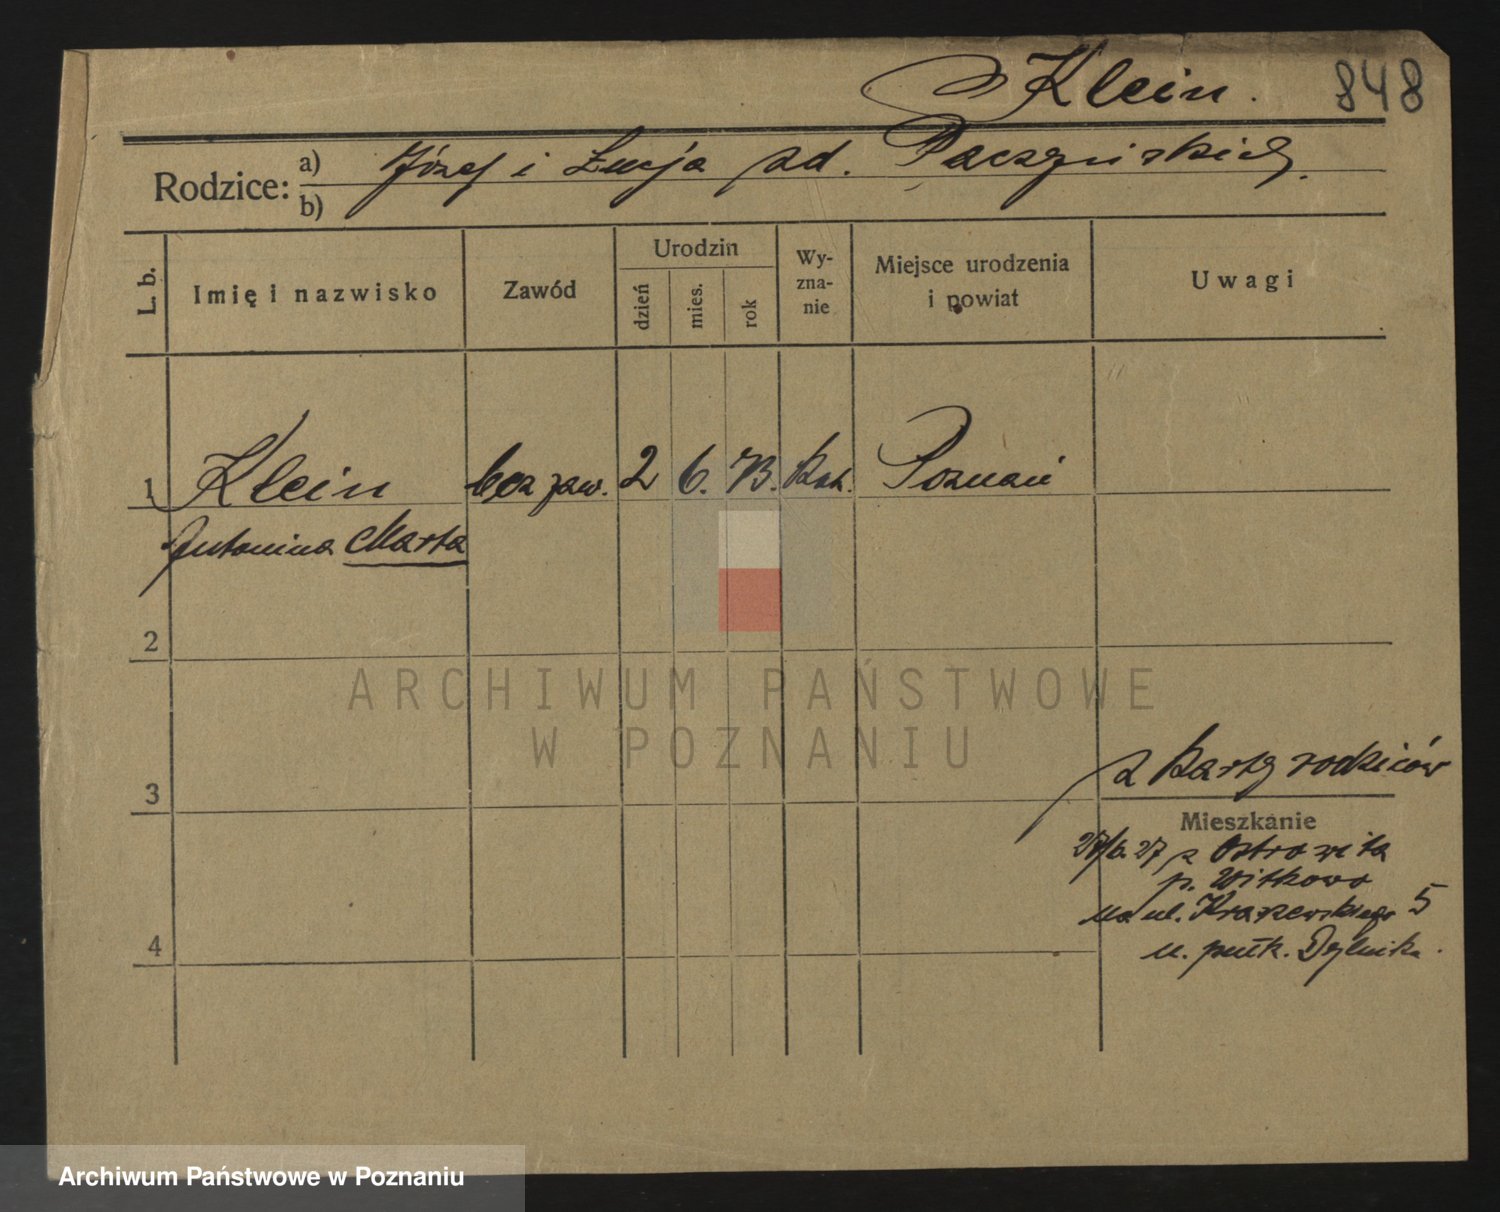 Klein. 848
Rodzice: a) Józef i Łucja zd. Paczyńskich.
b)
L. b. Imię i nazwisko Zawód Urodzin dzień mies. rok Wy-
zna-
nie Miejsce urodzenia
i powiat Uwagi
1 Klein bez zaw. 2 6. 73. kat. Poznań
Antonina Marta
2
ARCHIWUM PAŃSTWOWE
W POZNANIU
z karty rodziców
3
Mieszkanie
27/6. 27 z Ostrowita
p. Witkowo
na ul. Kraszewskiego 5
4
u. pułk.
Archiwum Państwowe w Poznaniu